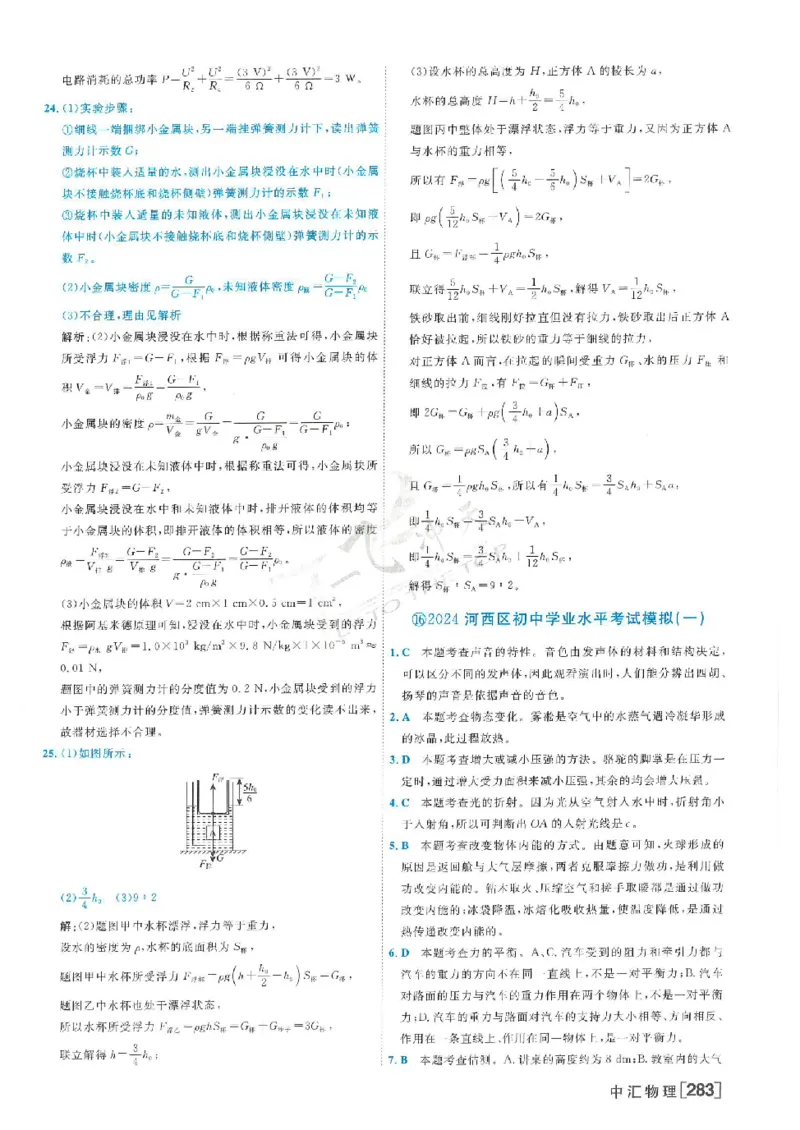 电路消耗的总功率 P=U²/R₂+U²/R₄=(3 V)²/6 Ω+(3 V)²/6 Ω=3 W。
24.(1)实验步骤:
①细线一端捆绑小金属块,另一端挂弹簧测力计下,读出弹簧
测力计示数 G;
②烧杯中装入适量的水,测出小金属块浸没在水中时(小金属
块不接触烧杯底和烧杯侧壁)弹簧测力计的示数 F₁;
③烧杯中装入适量的未知液体,测出小金属块浸没在未知液
体中时(小金属块不接触烧杯底和烧杯侧壁)弹簧测力计的示
数 F₂。
(2)小金属块密度 ρ=G/(G-F₁)ρ₀,未知液体密度 ρ液=(G-F₂)/(G-F₁)ρ₀
(3)不合理,理由见解析
解析:(2)小金属块浸没在水中时,根据称重法可得,小金属块
所受浮力 F浮1=G-F₁,根据 F浮=ρgV排 可得小金属块的体
积 V金=V排=F浮1/ρ₀g=(G-F₁)/ρ₀g,
小金属块的密度 ρ=m金/V金=G/gV金=G/(g·(G-F₁)/ρ₀g)=G/(G-F₁)ρ₀;
小金属块浸没在未知液体中时,根据称重法可得,小金属块所
受浮力 F浮2=G-F₂,
小金属块浸没在水中和未知液体中时,排开液体的体积均等
于小金属块的体积,即排开液体的体积相等,所以液体的密度
ρ液=F浮2/V排g=(G-F₂)/V排g=(G-F₂)/(g·(G-F₁)/ρ₀g)=(G-F₂)/(G-F₁)ρ₀。
(3)小金属块的体积 V=2 cm×1 cm×0.5 cm=1 cm³,
根据阿基米德原理可知,浸没在水中时,小金属块受到的浮力
F浮=ρ水gV排=1.0×10³ kg/m³×9.8 N/kg×1×10⁻⁶ m³≈
0.01 N,
题图中的弹簧测力计的分度值为 0.2 N,小金属块受到的浮力
小于弹簧测力计的分度值,弹簧测力计示数的变化读不出来,
故器材选择不合理。
25.(1)如图所示:
F浮
5h₀/6
A
G
(2)3/4h₀ (3)9:2
解:(2)题图甲中水杯漂浮,浮力等于重力,
设水的密度为 ρ,水杯的底面积为 S杯,
题图甲中水杯所受浮力 F浮杯=ρg(h+h₀/2-h₀)S杯=G杯,
题图乙中水杯也处于漂浮状态,
所以水杯所受浮力 F浮乙=ρghS杯=G杯+G杯水=3G杯,
联立解得 h=3/4h₀;
(3)设水杯的总高度为 H,正方体 A 的棱长为 a,
水杯的总高度 H=h+h₀/2=5/4h₀,
题图丙中整体处于漂浮状态,浮力等于重力,又因为正方体 A
与水杯的重力相等,
所以有 F浮=ρg[(5/4h₀-5/6h₀)S杯+V_A]=2G杯,
即 ρg(5/12h₀S杯+V_A)=2G杯,
且 G杯=F浮杯=1/4ρgh₀S杯,
联立得 5/12h₀S杯+V_A=1/2h₀S杯,解得 V_A=1/12h₀S杯,
铁砂取出前,细线刚好拉直但没有力,铁砂取出后正方体 A
恰好被拉起,所以铁砂的重力等于细线的拉力,
对正方体 A 而言,在拉起的瞬间受重力 G杯、水的压力 F压 和
细线的拉力 F拉,有 F拉=G杯+F压,
即 2G杯=G杯+ρg(3/4h₀+a)S_A,
所以 G杯=ρgS_A(3/4h₀+a),
且 G杯=1/4ρgh₀S杯,所以有 1/4h₀S杯=3/4S_Ah₀+S_Aa,
即 1/4h₀S杯=3/4S_Ah₀+V_A,
即 1/4h₀S杯=3/4S_Ah₀+1/12h₀S杯,
解得 S杯:S_A=9:2。
⑯2024 河西区初中学业水平考试模拟(一)
1. C 本题考查声音的特性。音色由发声体的材料和结构决定,
可以区分不同的发声体,因此观看演出时,人们能分辨出四胡、
扬琴的声音是依据声音的音色。
2. A 本题考查物态变化。雾凇是空气中的水蒸气遇冷凝华形成
的冰晶,此过程放热。
3. D 本题考查增大或减小压强的方法。骆驼的脚掌是在压力一
定时,通过增大受力面积来减小压强,其余的均会增大压强。
4. C 本题考查光的折射。因为光从空气射入水中时,折射角小
于入射角,所以可判断出 OA 的入射光线是 c。
5. B 本题考查改变物体内能的方式。由题意可知,火球形成的
原因是返回舱与大气层摩擦,两者克服摩擦力做功,是利用做
功改变内能的。钻木取火、压缩空气和搓手取暖都是通过做功
改变内能的;冰袋降温,冰熔化吸收热量,使温度降低,是通过
热传递改变内能的。
6. D 本题考查力的平衡。A、C. 汽车受到的阻力和牵引力都与
汽车的重力的方向不在同一直线上,不是一对平衡力;B. 汽车
对路面的压力与汽车的重力作用在两个物体上,不是一对平衡
力;D. 汽车的重力与路面对汽车的支持力大小相等、方向相反、
作用在一条直线上、作用在同一物体上,是一对平衡力。
7. B 本题考查估测。A. 讲桌的高度约为 8 dm;B. 教室内的大气
中汇物理[283]